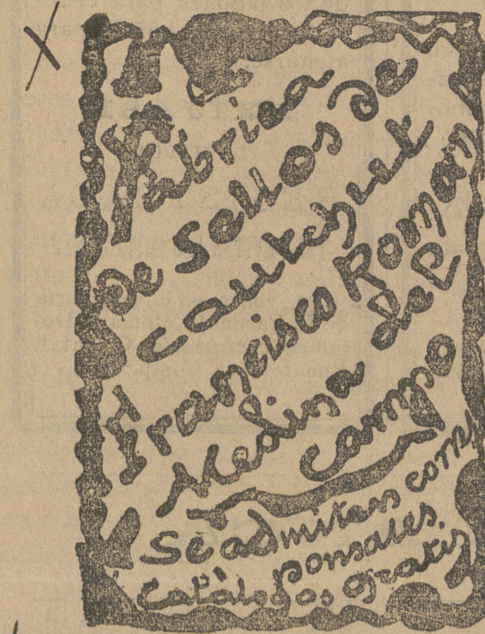 Fabrica
de Sellos de
cautchut
Francisco Roman
Medina del
Campo
Se admiten corres
ponsales.
Catálogos gratis